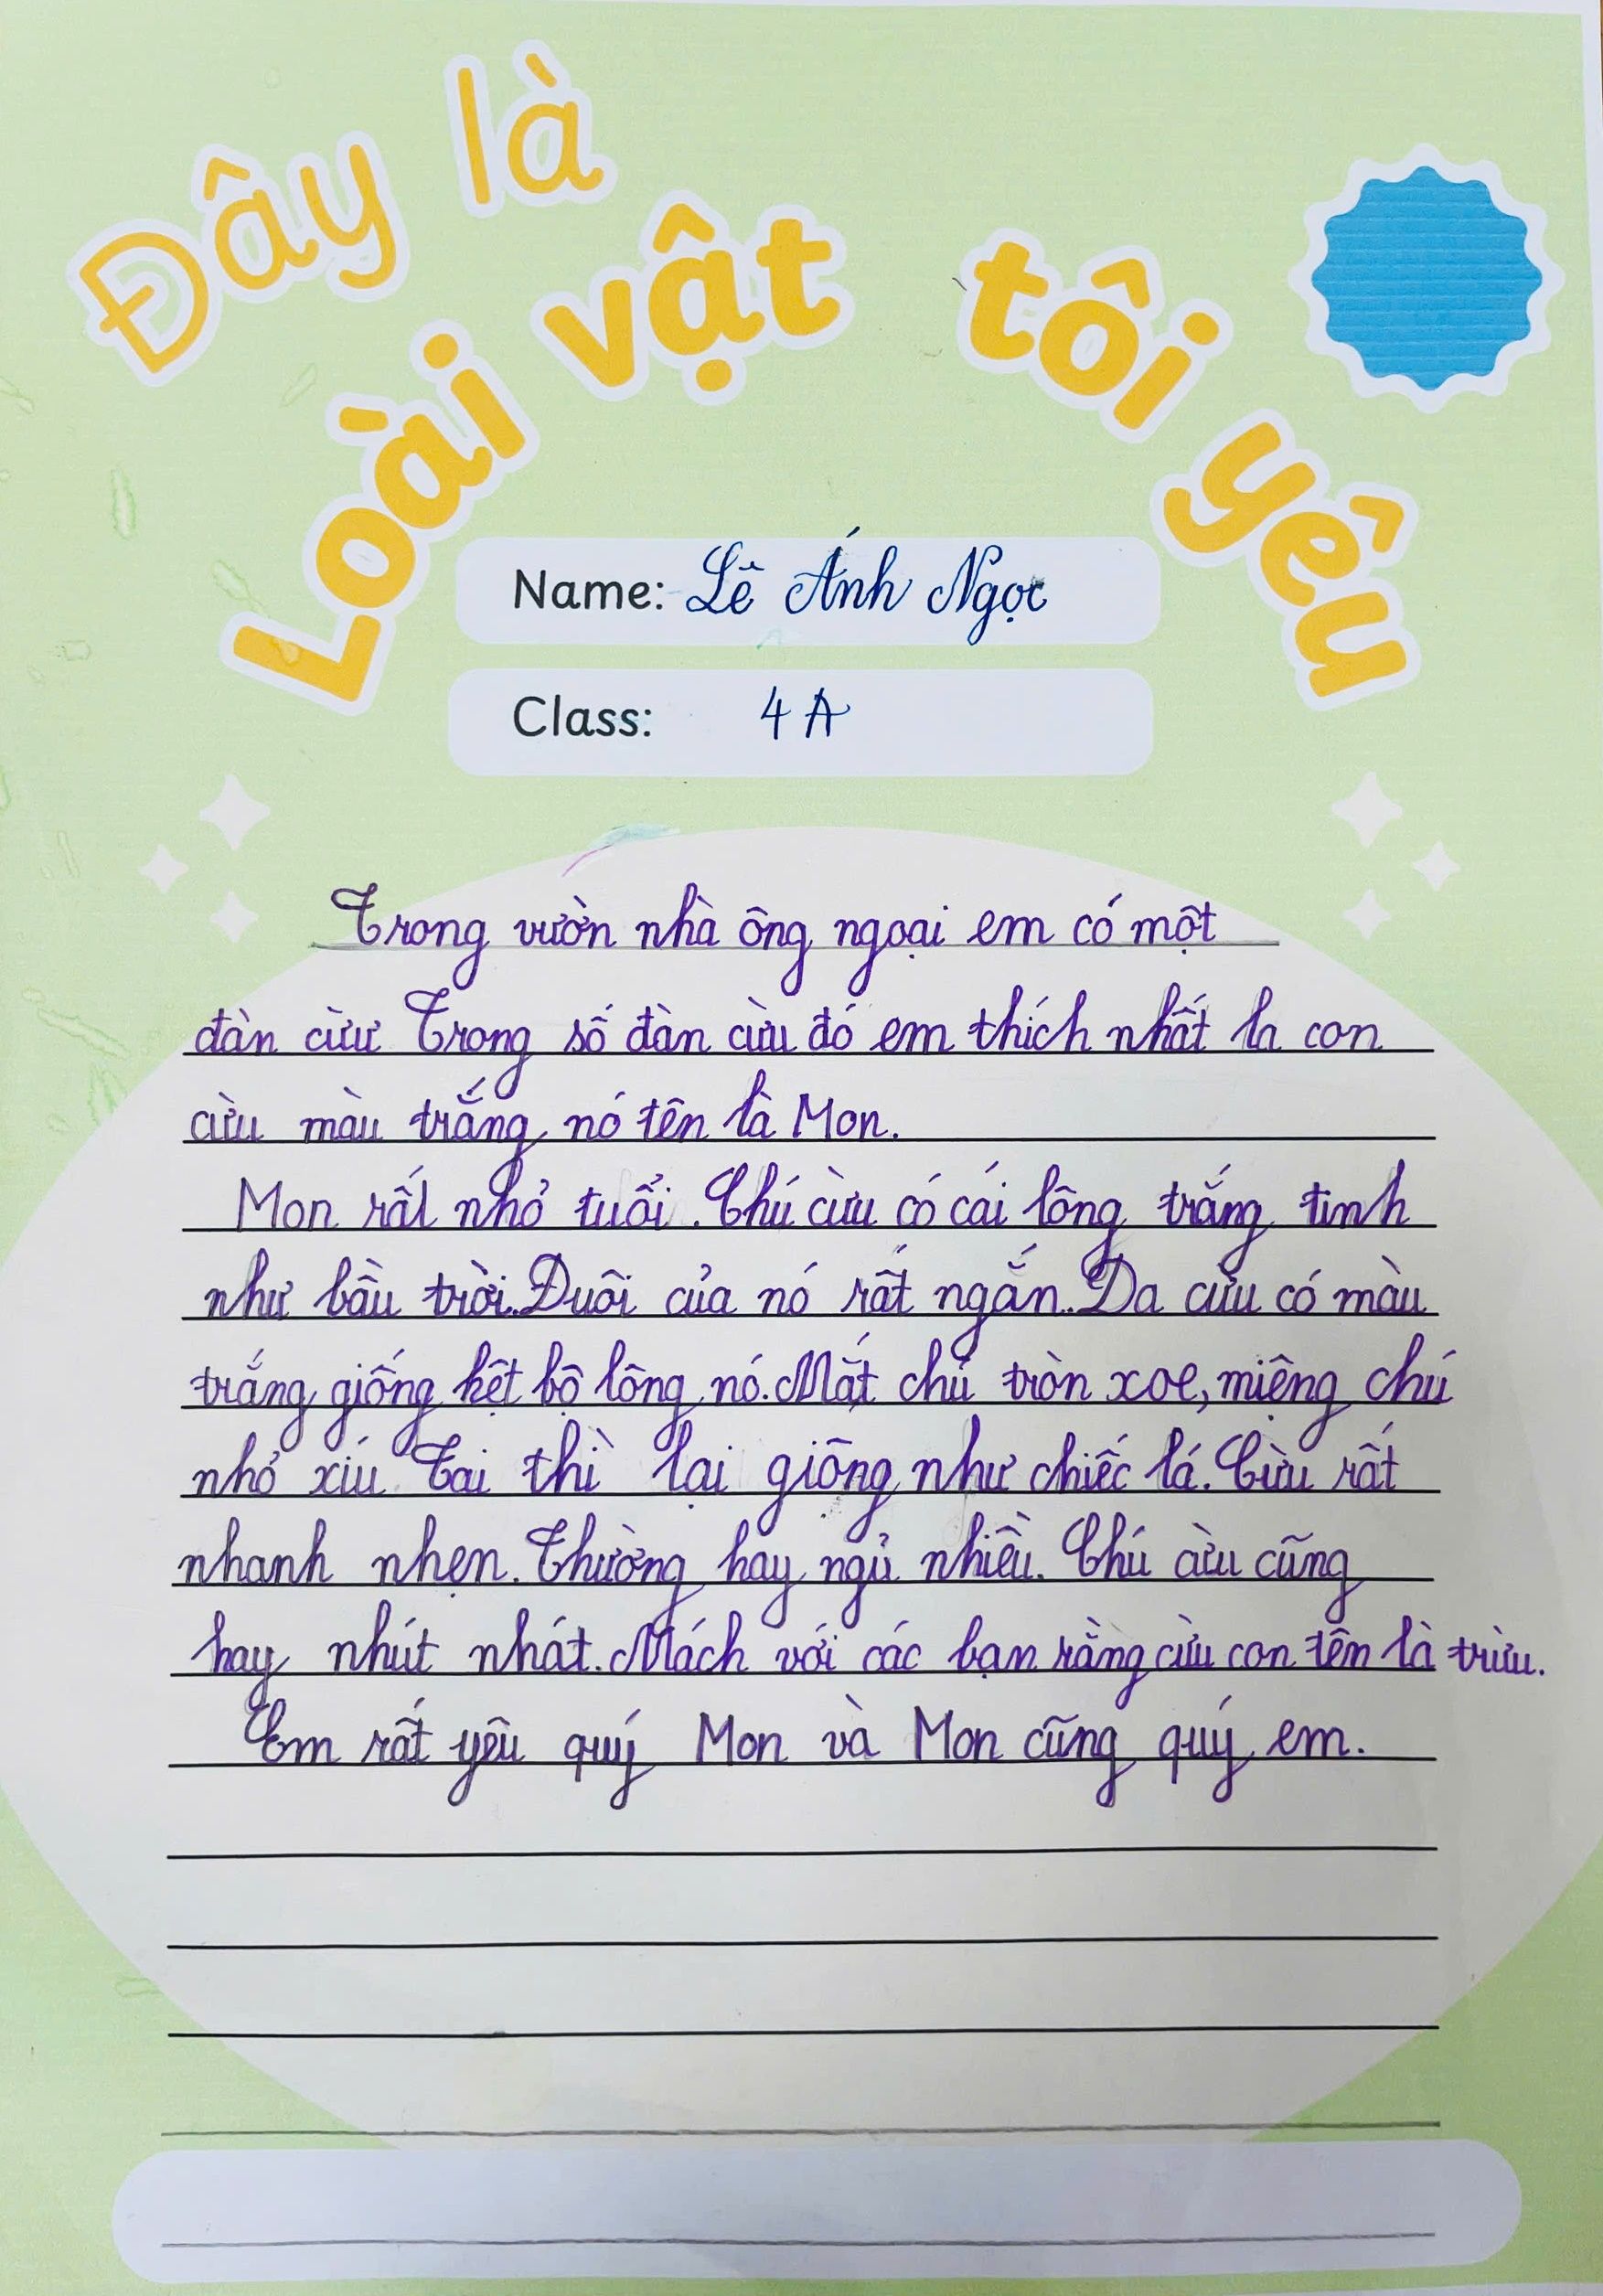 Đây là
Loài vật tôi yêu
Name: Lê Ánh Ngọc
Class: 4A
Trong vườn nhà ông ngoại em có một
đàn cừu Trong số đàn cừu đó em thích nhất la con
cừu màu trắng nó tên là Mon.
Mon rất nhỏ tuổi. Chú cừu có cái lông trắng tinh
như bầu trời. Đuôi của nó rất ngắn. Da cừu có màu
trắng giống hệt bộ lông nó. Mắt chú tròn xoe, miệng chú
nhỏ xíu. Tai thì lại giông như chiếc lá. Cừu rất
nhanh nhẹn. Thường hay ngủ nhiều. Chú cừu cũng
hay nhút nhát. Mách với các bạn rằng cừu con tên là trừu.
Em rất yêu quý Mon và Mon cũng quý em.